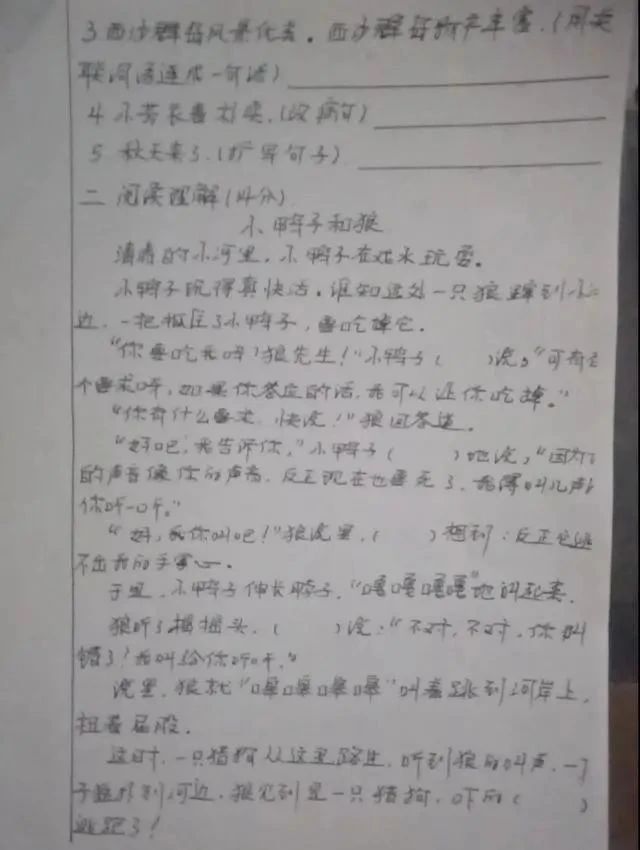 3 西沙群岛风景优美。西沙群岛物产丰富。(用关
联词语连成一句话)
4 小芳长喜刘奕.(改病句)
5 秋天来了.(扩写句子)
二 阅读理解(14分)
小鸭子和狼
清清的小河里，小鸭子在戏水玩耍。
小鸭子玩得真快活。谁知这处一只狼蹿到小
边，一把抓住了小鸭子，要吃掉它.
"你要吃我呀?狼先生!"小鸭子( )说,"可有
个要求呀，如果你答应的话,我可以让你吃掉。"
"你有什么要求，快说!"狼回答道.
"好吧,我告诉你,"小鸭子( )地说,"因为
的声音像你的声音，反正现在也要死了，我得叫几声
你听一听。"
"好,你叫吧!"狼说罢,( )想到:反正它逃
不出我的手掌心.
于是,小鸭子伸长脖子,"嘎嘎嘎嘎"地叫起来.
狼听了摇摇头,( )说:"不对,不对,你叫
错了!我叫给你听听。"
说罢,狼就"嗥嗥嗥嗥"叫着跳到河岸上,
扭着屁股.
这时,一只猎狗从这里路过,听到狼的叫声,一下
子跑到河边,狼见到是一只猎狗,吓的( )
逃跑了!